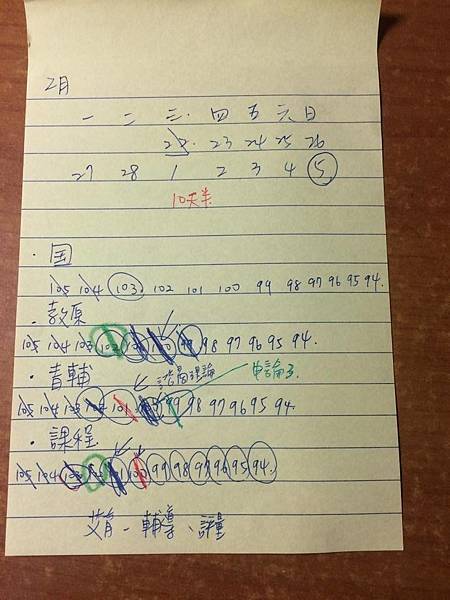 2月
一 二 三 四 五 六 日
22 23 24 25 26
27 28 1 2 3 4 5
10天半
·国
105 104 103 102 101 100 99 98 97 96 95 94.
·教原
105 104 103 102 101 100 99 98 97 96 95 94.
·青輔 諮商理論 申論3
105 104 103 102 101 100 99 98 97 96 95 94
·課程
105 104 103 102 101 100 99 98 97 96 95 94.
輔導、課程